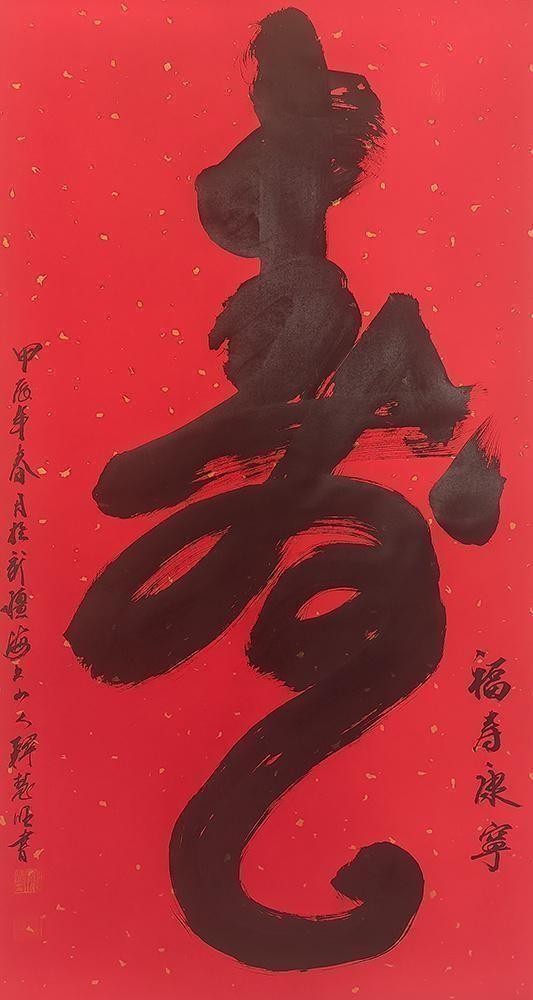 寿
福寿康寧
甲辰年春月於新疆海上山人慧旺書